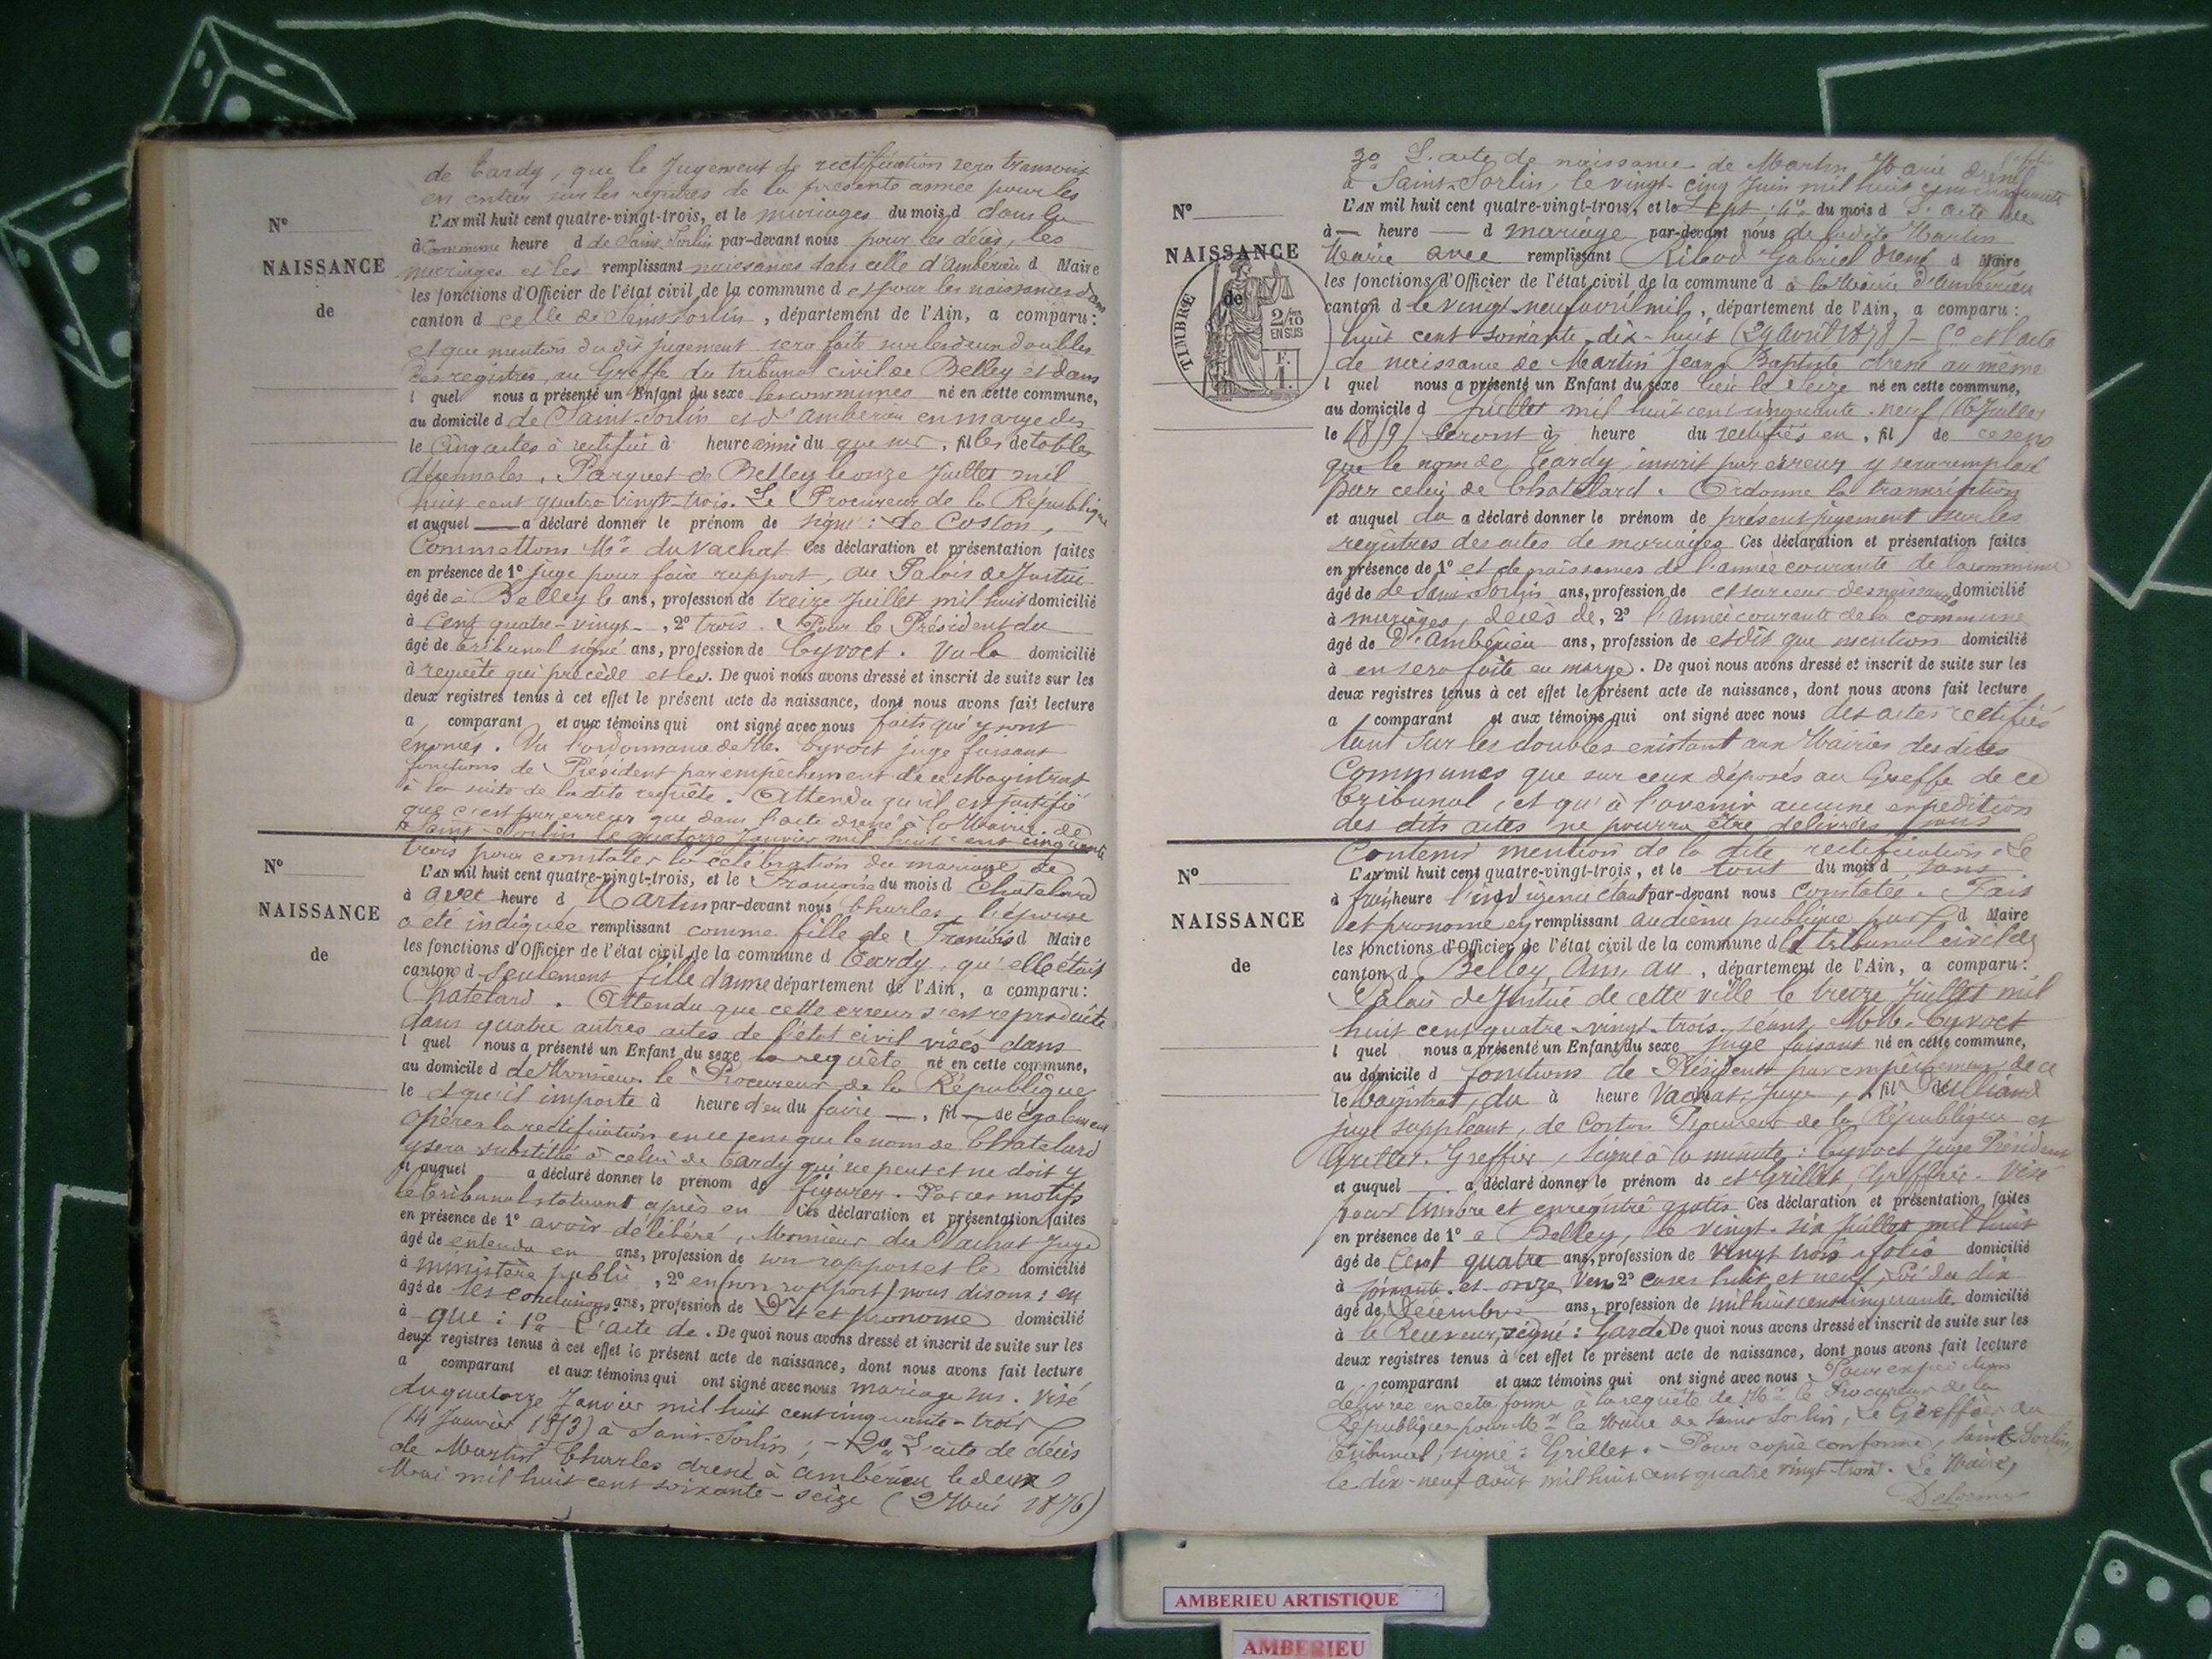 de Tardy, que le Jugement de rectification sera transcrit
en entier sur les registres de la présente année pour les
N°
L'AN mil huit cent quatre-vingt-trois, et le mariages du mois d dans la
à Commune heure d de Saint Sorlin par-devant nous pour les décès, les
NAISSANCE
mariages et les remplissant naissances dans celle d'Ambérieu d Maire
les fonctions d'Officier de l'état civil de la commune d et pour les naissances dans
de
canton d celle de Saint Sorlin, département de l'Ain, a comparu:
et que mention du dit jugement sera faite sur les deux doubles
des registres, au Greffe du tribunal civil de Belley et dans
l quel nous a présenté un Enfant du sexe les communes né en cette commune,
au domicile d de Saint-Sorlin et d'Ambérieu en marge des
le Cinq actes à rectifier à heure ainsi du que sur, fil les de tables
décennales. Parquet de Belley le onze Juillet mil
huit cent quatre vingt-trois. Le Procureur de la République
et auquel a déclaré donner le prénom de signé: de Coston.
Commettons Mr du Vachat Ces déclaration et présentation faites
en présence de 1° juge pour faire rapport, au Palais de Justice
âgé de à Belley le ans, profession de treize Juillet mil huit domicilié
à Cent quatre-vingt-, 2° trois. Pour le Président du
âgé de tribunal signé ans, profession de Cyvoct. Vu la domicilié
à requête qui précède et les. De quoi nous avons dressé et inscrit de suite sur les
deux registres tenus à cet effet le présent acte de naissance, dont nous avons fait lecture
a comparant et aux témoins qui ont signé avec nous faits qui y sont
énoncés. Vu l'ordonnance de M. Cyvoct juge faisant
fonctions de Président par empêchement de ce Magistrat
à la suite de la dite requête. Attendu qu'il est justifié
que c'est par erreur que dans l'acte dressé à la Mairie de
Saint-Sorlin le quatorze Janvier mil huit cent cinquante
trois pour constater la célébration du mariage de
N°
L'AN mil huit cent quatre-vingt-trois, et le Françoise du mois d Chatelard
à avec heure d Martin par-devant nous Charles, l'épouse
NAISSANCE
a été indiquée remplissant comme fille de Francois d Maire
les fonctions d'Officier de l'état civil de la commune d Tardy, qu'elle était
de
canton d seulement fille d'anne département de l'Ain, a comparu:
Chatelard. Attendu que cette erreur s'est reproduite
dans quatre autres actes de l'état civil visés dans
l quel nous a présenté un Enfant du sexe la requête né en cette commune,
au domicile d de Monsieur le Procureur de la République
le et qu'il importe à heure d'en du faire, fil de également
opérer la rectification en ce sens que le nom de Chatelard
y sera substitué à celui de Tardy qui ne peut et ne doit y
et auquel a déclaré donner le prénom de figurer. Par ces motifs
le tribunal statuant après en Ces déclaration et présentation faites
en présence de 1° avoir délibéré, Monsieur du Vachat Juge
âgé de entendu en ans, profession de son rapport et le domicilié
à ministère public, 2° en (son rapport) nous disons: en
âgé de ses conclusions ans, profession de Dit et prononce domicilié
à que: 1° L'acte de. De quoi nous avons dressé et inscrit de suite sur les
deux registres tenus à cet effet le présent acte de naissance, dont nous avons fait lecture
a comparant et aux témoins qui ont signé avec nous mariage sus. visé
du quatorze Janvier mil huit cent cinquante-trois
(14 Janvier 1853) à Saint-Sorlin; - 2° L'acte de décès
de Martin Charles dressé à Ambérieu le deux
Mai mil huit cent soixante-seize (2 Mai 1876)
3° L'acte de naissance de Martin Marie dressé
à Saint-Sorlin, le vingt-cinq Juin mil huit cent cinquante
N°
L'AN mil huit cent quatre-vingt-trois, et le sept; 4° du mois d L'acte de
à heure d mariage par-devant nous de ladite Martin
NAISSANCE
Marie avec remplissant Ribod Gabriel dressé d Maire
les fonctions d'Officier de l'état civil de la commune d à la Mairie d'Ambérieu
TIMBRE
de
2/10
EN SUS
canton d le vingt-neuf avril mil, département de l'Ain, a comparu:
huit cent soixante-dix-huit (29 avril 1878) - 5° et l'acte
de naissance de Martin Jean Baptiste dressé au même
l quel nous a présenté un Enfant du sexe lieu le Seize né en cette commune,
au domicile d Juillet mil huit cent cinquante-neuf (16 Juillet
le 1859) Seront à heure du rectifiés en, fil de ce sens
que le nom de Tardy inscrit par erreur y sera remplacé
par celui de Chatelard. Ordonne la transcription
et auquel du a déclaré donner le prénom de présent jugement sur les
registres des actes de mariages Ces déclaration et présentation faites
en présence de 1° et de naissances de l'année courante de la commune
âgé de de Saint Sorlin ans, profession de et sur ceux des naissances domicilié
à mariages, décès de, 2° l'année courante de la commune
âgé de d'Ambérieu ans, profession de et dit que mention domicilié
à en sera faite en marge. De quoi nous avons dressé et inscrit de suite sur les
deux registres tenus à cet effet le présent acte de naissance, dont nous avons fait lecture
a comparant et aux témoins qui ont signé avec nous des actes rectifiés
tant sur les doubles existant aux Mairies desdites
Communes que sur ceux déposés au Greffe de ce
tribunal, et qu'à l'avenir aucune expédition
des dits actes ne pourra être délivrée sans
Contenir mention de la dite rectification. Le
N°
L'AN mil huit cent quatre-vingt-trois, et le tout du mois d sans
à frais heure l'indigence étant par-devant nous constatée. Fait
NAISSANCE
et prononcé en remplissant audience publique par d Maire
les fonctions d'Officier de l'état civil de la commune d le tribunal civil de
de
canton d Belley Ain, au, département de l'Ain, a comparu:
Palais de Justice de cette ville le treize Juillet mil
huit cent quatre-vingt-trois, séant, MM. Cyvoct
l quel nous a présenté un Enfant du sexe juge faisant né en cette commune,
au domicile d fonctions de Président par empêchement de ce
le Magistrat, du à heure Vachat, Juge, fil de
juge suppléant, de Coston Procureur de la République et
Grillet, Greffier, Signé à la minute: Cyvoct juge Président
et auquel a déclaré donner le prénom de et Grillet, Greffier. Visé
pour timbre et enregistré gratis Ces déclaration et présentation faites
en présence de 1° à Belley, le vingt-six Juillet mil huit
âgé de Cent quatre ans, profession de vingt trois folio domicilié
à soixante et onze Verso 2° cases huit et neuf, Loi du dix
âgé de Décembre ans, profession de mil huit cent cinquante domicilié
à le Receveur, signé: Garde De quoi nous avons dressé et inscrit de suite sur les
deux registres tenus à cet effet le présent acte de naissance, dont nous avons fait lecture
a comparant et aux témoins qui ont signé avec nous Pour expédition
délivrée en cette forme à la requête de Mr le Procureur de la
République pour Mr le Maire de Saint Sorlin, Le Greffier du
tribunal, signé: Grillet. - Pour copie conforme, Saint-Sorlin,
le dix-neuf août mil huit cent quatre vingt-trois. Le Maire,
AMBERIEU ARTISTIQUE
AMBERIEU